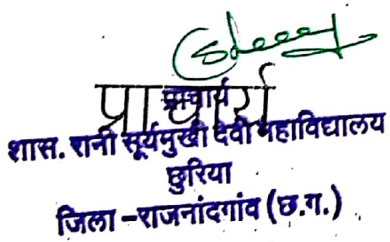 प्राचार्य
प्राचार्य
शास. रानी सूर्यमुखी देवी महाविद्यालय
छुरिया
जिला -राजनांदगांव (छ.ग.)